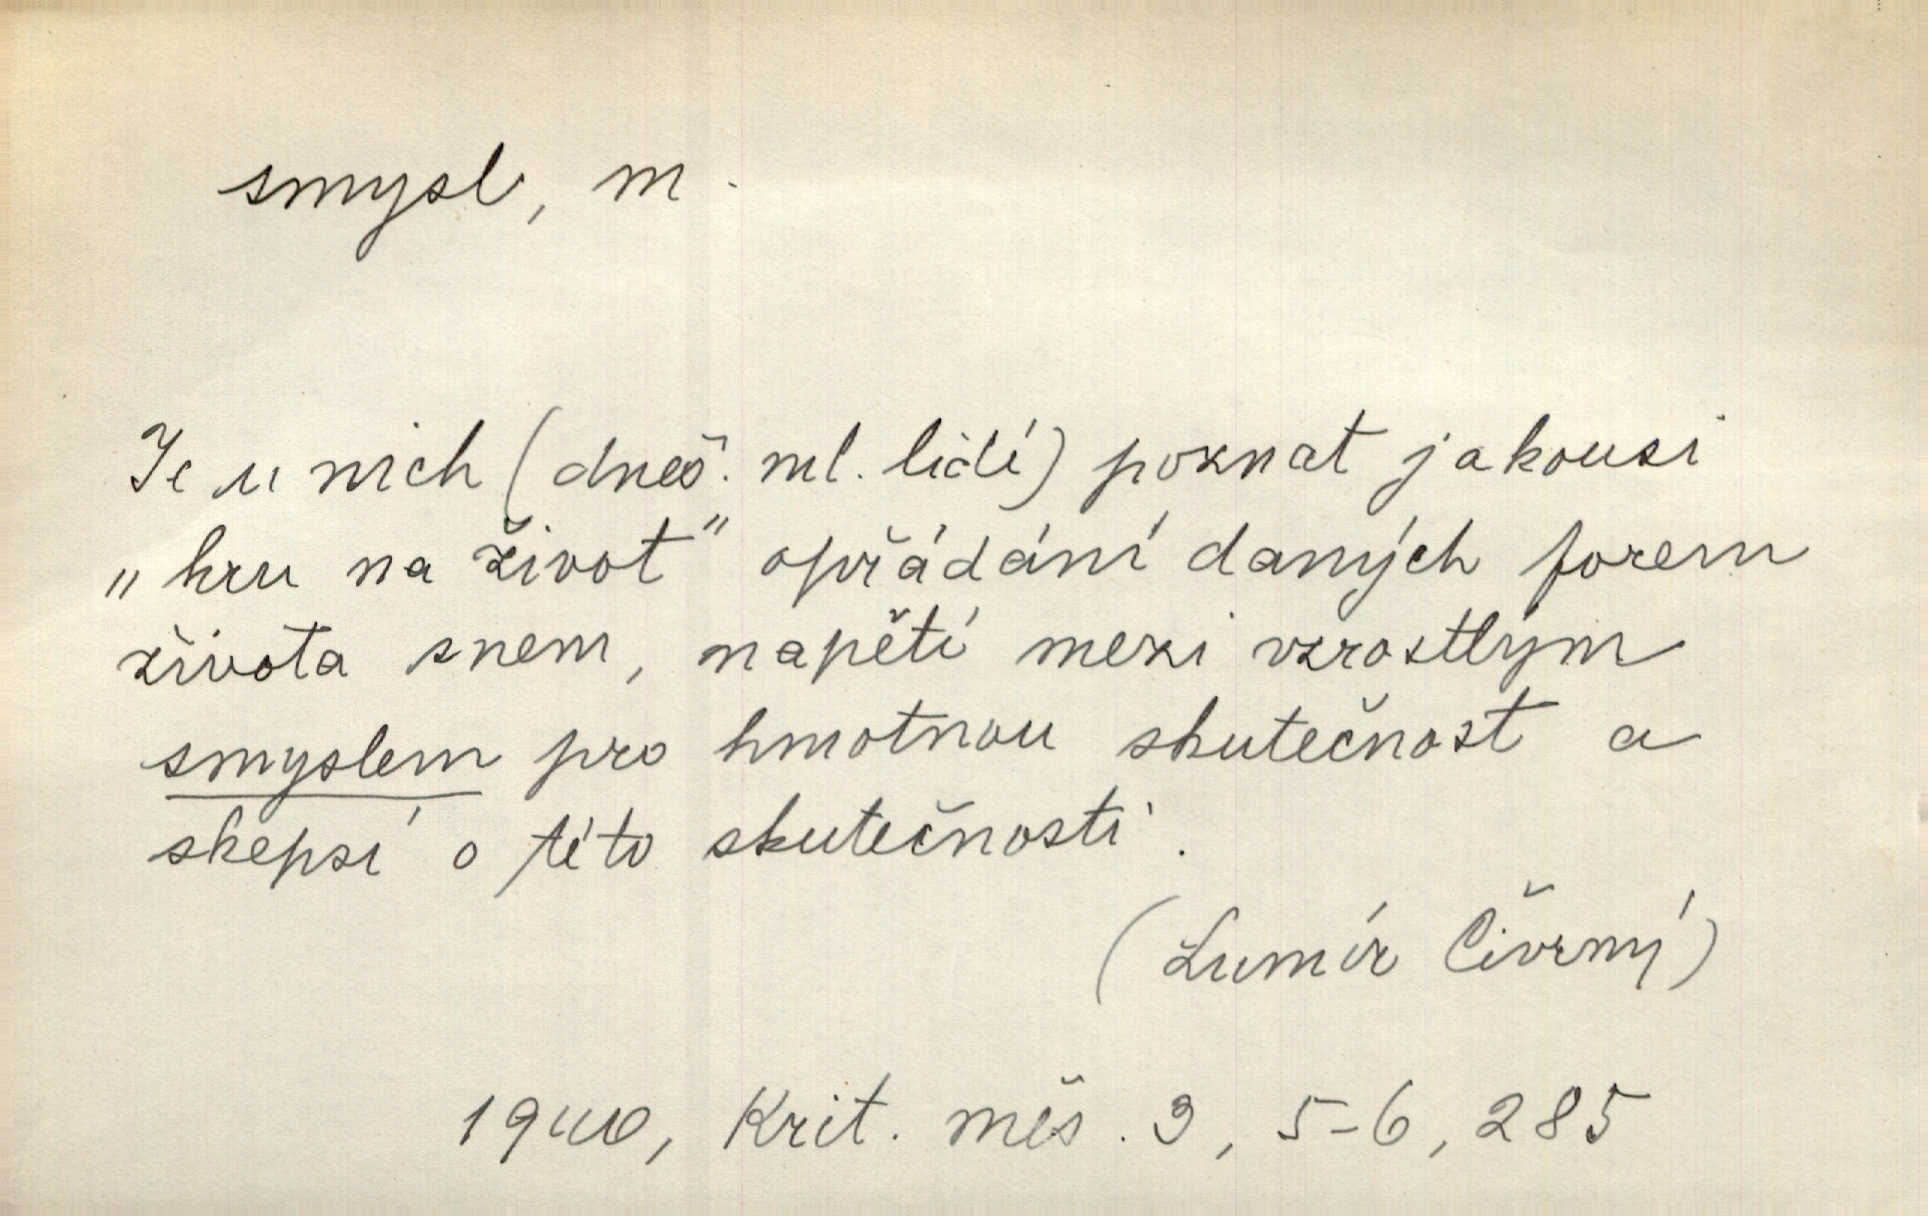 smysl, m.
Je u nich (dneš. ml. lidí) poznat jakousi
„hru na život" opřádání daných forem
života snem, napětí mezi vzrostlým
smyslem pro hmotnou skutečnost a
skepsí o této skutečnosti.
(Lumír Čivrný)
1940, Krit. měs. 3, 5-6, 285